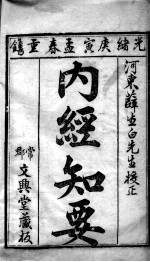 光緒庚寅孟春重鐫
河東薛生白先生校正
內經知要
常郡文興堂藏板